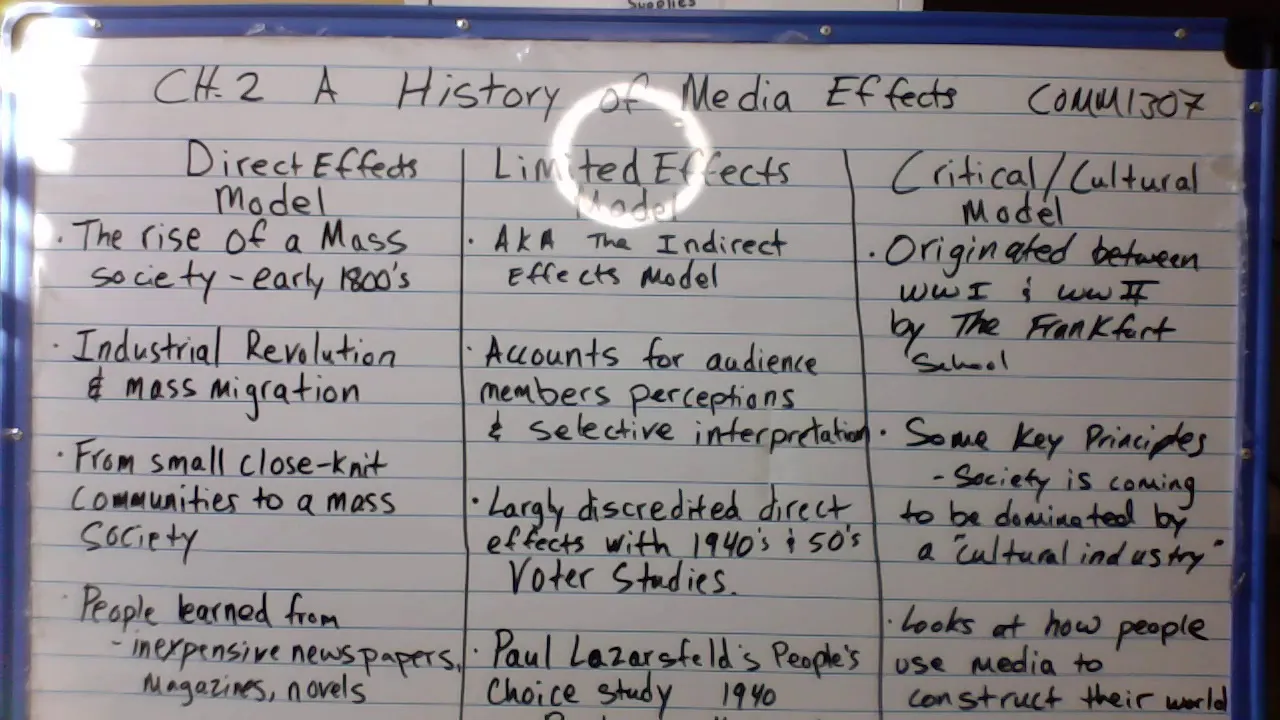 Supplies
CH. 2 A History of Media Effects COMM1307
Direct Effects
Model
· The rise of a Mass
society - early 1800's
· Industrial Revolution
& mass migration
· From small close-knit
communities to a mass
society
· People learned from
- inexpensive newspapers,
magazines, novels
Limited Effects
Model
· AKA The Indirect
Effects Model
· Accounts for audience
members perceptions
& selective interpretation
· Largly discredited direct
effects with 1940's & 50's
Voter Studies.
· Paul Lazarsfeld's People's
Choice study 1940
Critical/Cultural
Model
· Originated between
WWI & WWII
by The Frankfort
School
· Some Key Principles
- Society is coming
to be dominated by
a "cultural industry"
· Looks at how people
use media to
construct their world